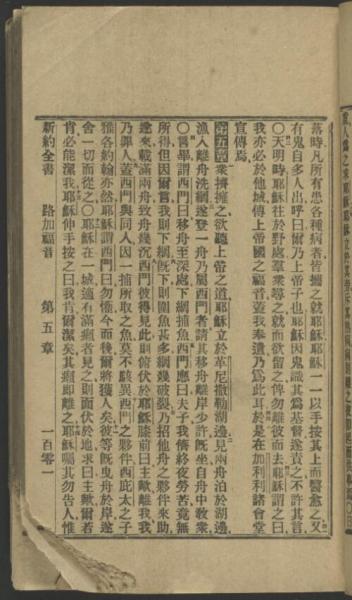 落時凡所有患各種病者皆攜之就耶穌耶穌一一以手按其上而醫愈之又
有鬼自多人出呼曰爾乃上帝子也耶穌因鬼識其爲基督遂責之不許其言
○天明時耶穌往於野處羣衆尋之就而欲留之俾勿離彼而去耶穌謂之曰
我亦必於他城傳上帝國之福音蓋我奉遣乃爲此耳於是在加利利諸會堂
宣傳焉
第五章 衆擠擁之欲聽上帝之道耶穌立於革尼撒勒湖邊見兩舟泊於湖邊
漁人離舟洗網遂登一舟乃屬西門者請其移舟離岸少許既坐自舟中敎衆
○言畢謂西門曰移舟至深處下網捕魚西門應曰夫子我儕終夜勞苦竟無
所得但因爾言我則下網既下則圍魚甚多網幾破裂乃招他舟之夥伴來助
遂來載滿兩舟致舟幾沉西門彼得見此則俯伏於耶穌膝前曰主歟離我我
乃罪人蓋西門與同人因一捕所取之魚莫不駭異西門之夥伴西庇太之子
雅各約翰亦然耶穌謂西門曰勿懼今而後爾將獲人矣彼等既曳舟於岸遂
舍一切而從之○耶穌在一城適有滿癩者見之則面伏於地求曰主歟爾若
肯必能潔我耶穌伸手按之曰我肯爾潔矣其癩卽離之耶穌囑其勿告人惟
新約全書 路加福音 第五章 一百零一